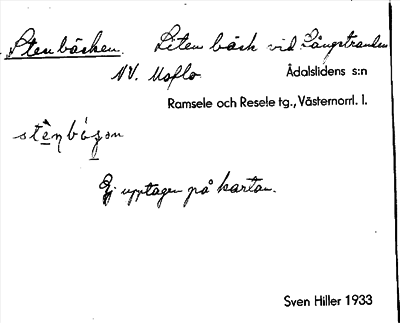 Stenbäcken. Liten bäck vid Långstranden
NV. Moflo Ådalslidens s:n
Ramsele och Resele tg., Västernorrl. l.
Ej upptagen på kartan.
Sven Hiller 1933